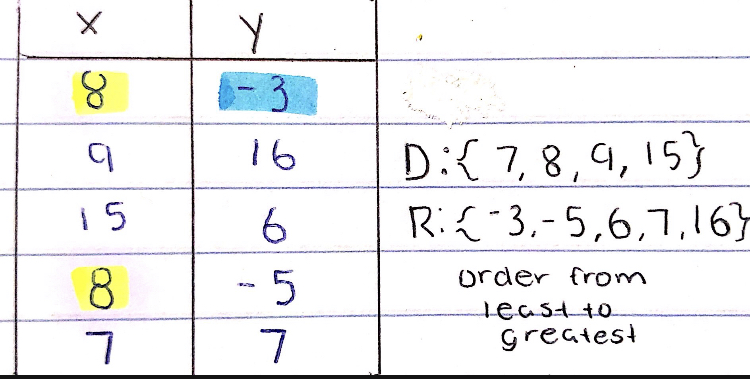 x y
8 -3
9 16 D:{ 7, 8, 9, 15}
15 6 R:{-3,-5,6,7,16}
8 -5 order from
least to
7 7 greatest